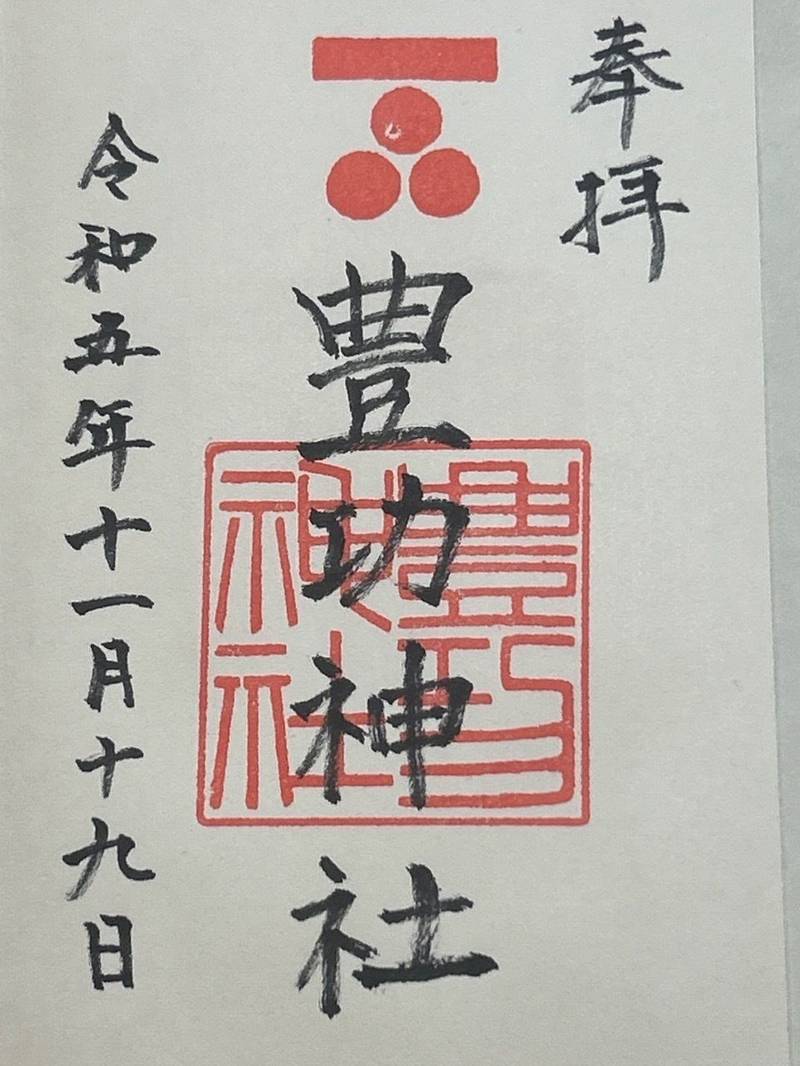 奉拝
豊功神社
豊功
神社
令和五年十一月十九日